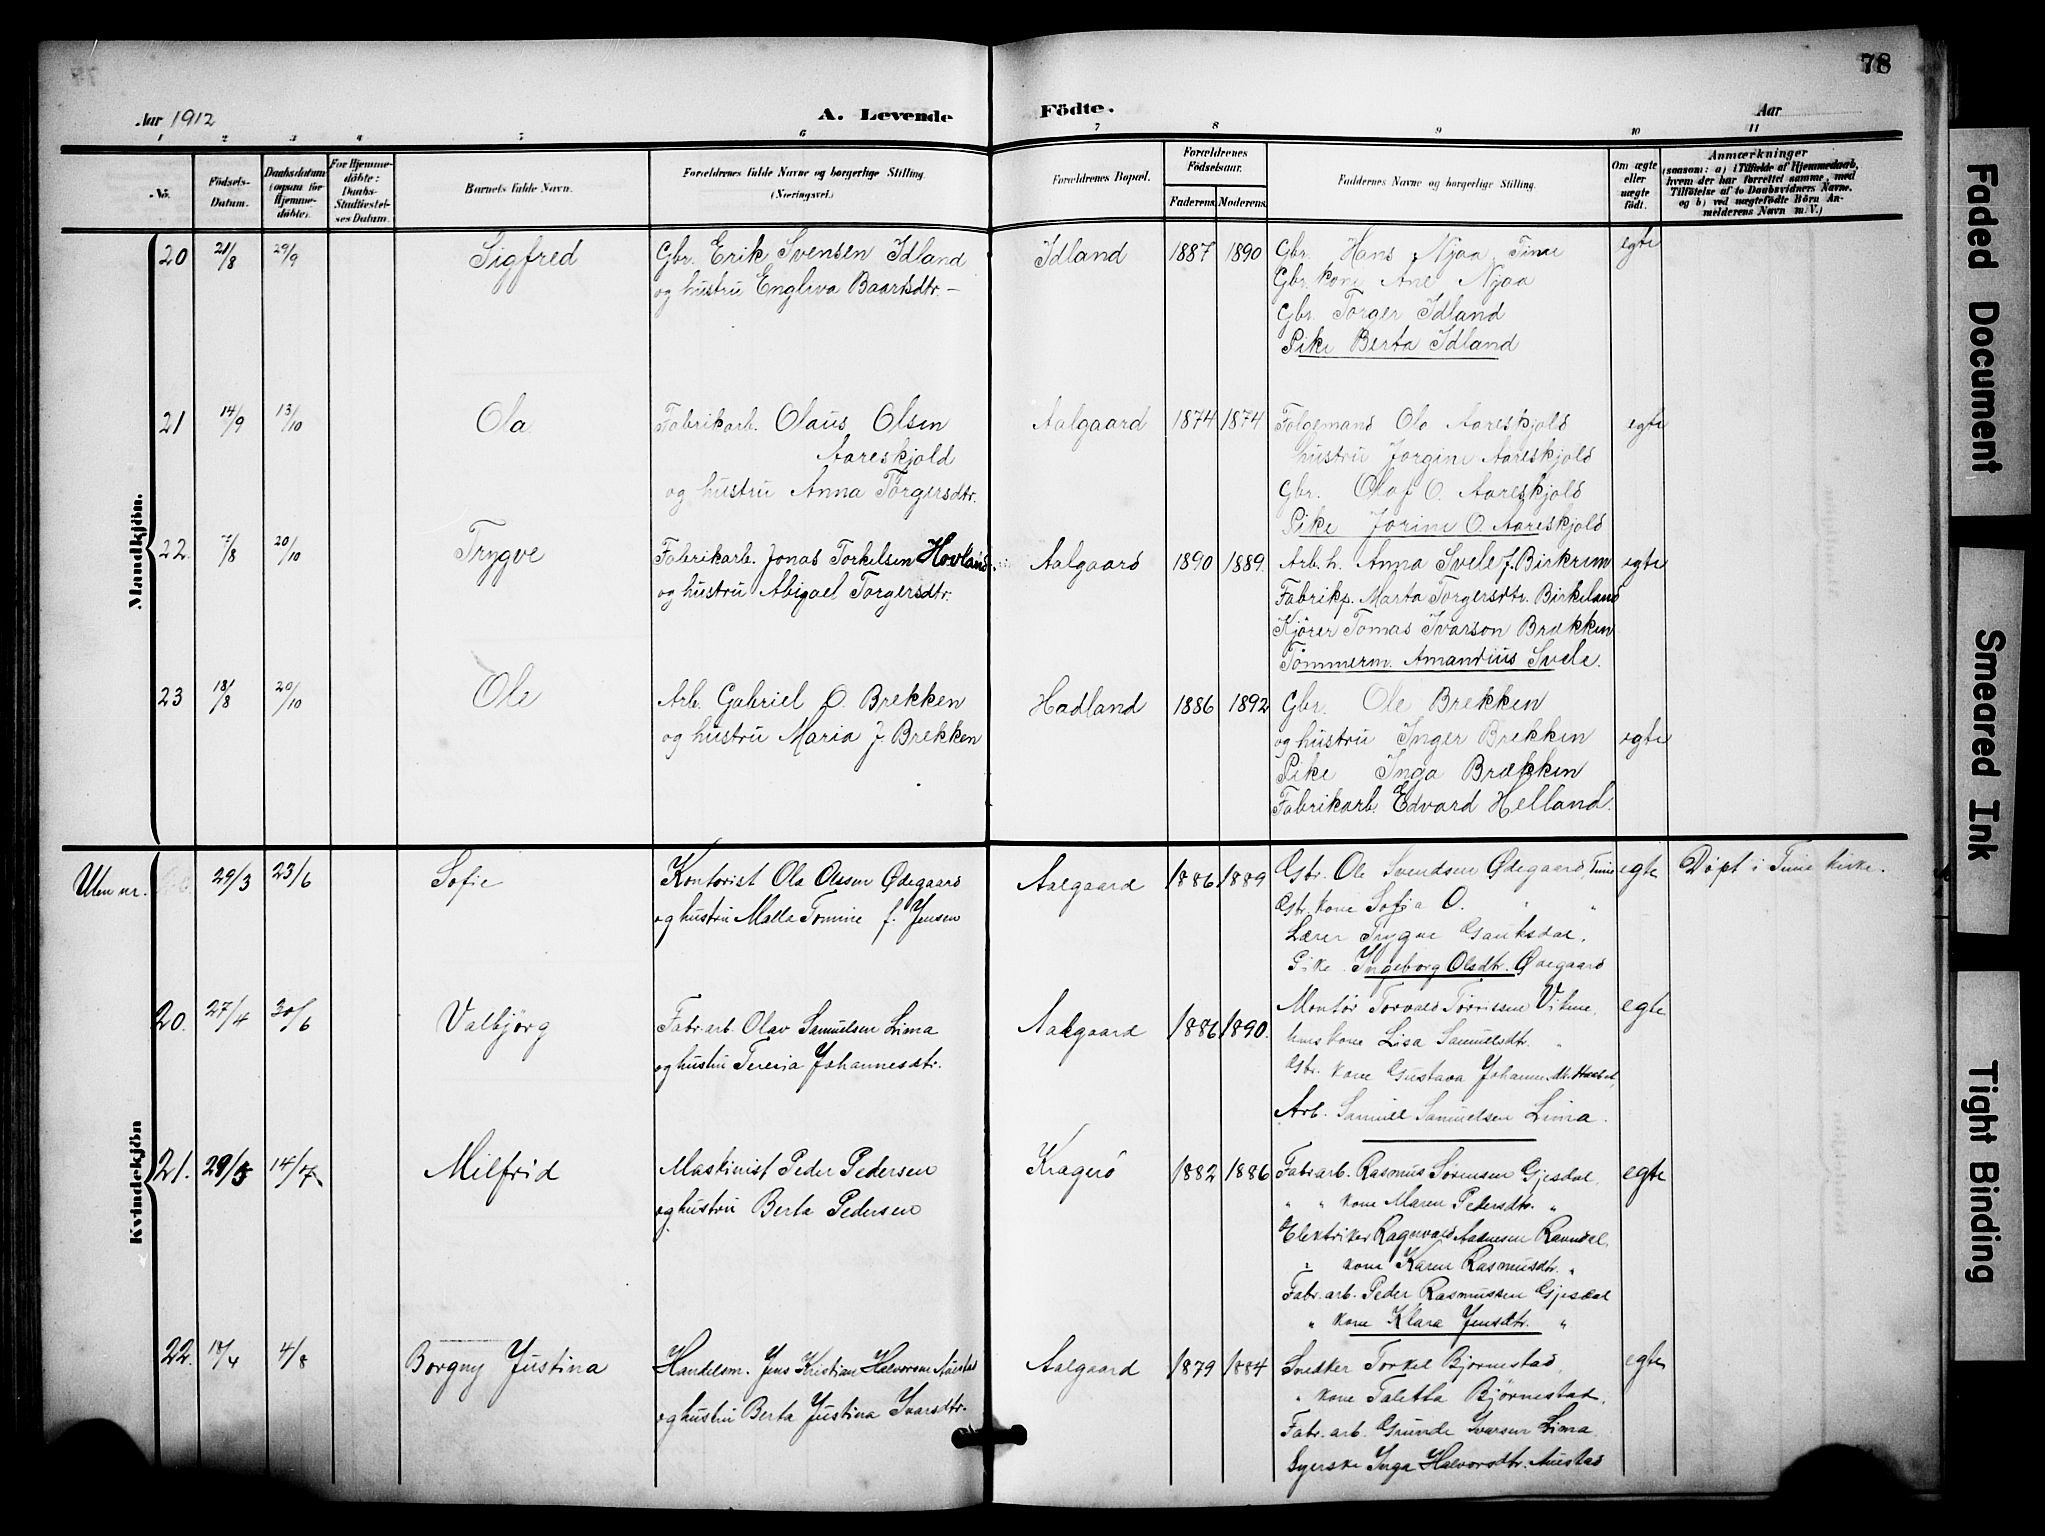 78
Aar 1912
A. Levende
Födte.
Aar
1 2 3 4 5 6 7 8 9 10 11
No.
Födsels-Datum.
Daabsdatum (ogsaa for Hjemme-döbte).
For Hjemme-döbte: Daabs-Stadfæstel-ses Datum.
Barnets fulde Navn.
Forældrenes fulde Navne og borgerlige Stilling. (Næringsvei.)
Forældrenes Bopæl.
Forældrenes Födselsaar.
Faderens. Moderens.
Faddernes Navne og borgerlige Stilling.
Om ægte eller uægte födt.
Anmærkninger
(saasom: a) i Tilfælde af Hjemmedaab, hvem der har forrettet samme, med Tilföielse af to Daabsvidners Navne, og b) ved uægtefödte Börn An-melderens Navn m. V.)
Mandkjön.
20 21/8 29/9 Sigfred
Gbr. Erik Svensen Idland
og hustru Engliva Baardsdtr. —
Idland 1887 1890
Gbr. Hans Njaa, Time
Gbr. kone Ane Njaa
Gbr. Torger Idland
Pike Berta Idland
egte
21 14/9 13/10 Ola
Fabrikarb. Olaus Olsen
Aareskjold
og hustru Anna Torgersdtr.
Aalgaard 1874 1874
Folgemand Ola Aareskjold
hustru Jorgine Aareskjold
Gbr. Olaf O. Aareskjold
Pike Jorine O. Aareskjold
egte
22. /8 20/10 Trygve
Fabrikarb. Jonas Torkelsen Hovland
og hustru Abigael Torgersdtr.
Aalgaard 1890 1889.
Arb. h. Anna Svele f. Birkrem
Fabrikp. Marta Torgersdtr. Birkeland
Kjörer Tomas Ivarson Brækken
Tømmerm. Amandius Svele.
egte
23 18/8 20/10 Ole
Arb. Gabriel O. Brekken
og hustru Maria J. Brekken
Hadland 1886 1892
Gbr. Ole Brekken
og hustru Inger Brekken
Pike Inga Brækken
Fabrikarb. Edvard Helland.
egte
Kvindekjön
Uten nr. 29/3 23/6 Sofie
Kontorist Ola Olssen Ødegaard
og hustru Malla Tomine f. Jensen
Aalgaard 1886 1889
Gbr. Ole Svendsen Ødegaard, Time
Gbr. kone Sofia O. " "
Lærer Trygve Gauksdal.
Pike Ingeborg Olsdtr. Ødegaard
egte
Døpt i Time kirke.
20. 27/4 30/6 Valbjörg
Fabr.arb. Olav Samuelsen Lima
og hustru Tereria Johannesdtr.
Aalgaard 1886 1890.
Montør Torvald Tørrissen Vikene.
hans kone Lisa Samuelsdtr. "
Gbr. kone Gustava
Arb. Samuel Samuelsen Lima.
egte
21. 29/5 14/7 Milfrid
Maskinist Peder Pedersen
og hustru Berta Pedersen
Kragerö 1882 1886
Fabr.arb. Rasmus Sørensen Gjesdal.
" " kone Maren Pedersdtr. "
Elektriker Ragnvald Aadnesen Ravndal.
" kone Karen Rasmusdtr. "
Fabr. arb. Peder Rasmussen Gjesdal
" kone Klara Jensdtr. "
egte
22. /4 4/8 Borgny Justina
Handelsm. Jens Kristian Halvorsen Austad
og hustru Berta Justina Ivarsdtr.
Aalgaard 1879 1884
Snedker Torkel Bjornestad,
" kone Taletta Björnestad.
Fabr. arb. Grunde Ivarsen Lima
Syerske Inga Halvorsdtr. Austad
egte
Faded Document
Smeared Ink
Tight Binding